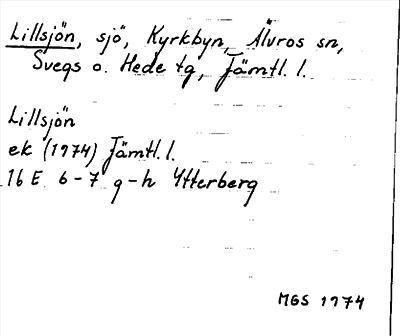 Lillsjön, sjö, Kyrkbyn, Älvros sn,
Svegs o. Hede tg, Jämtl. l.
Lillsjön
ek (1974) Jämtl. l.
16 E 6-7 g-h Ytterberg
MGS 1974